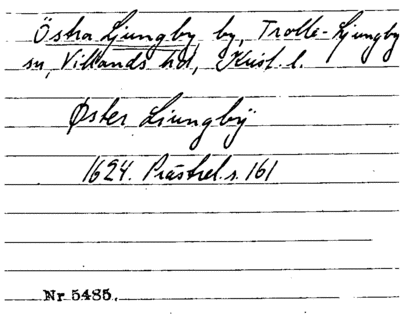 Östra Ljungby by, Trolle-Ljungby
sn, Villands hd, Krist. l.
Øster Liungbÿ
1624. Prästrel. s. 161
Nr 5485.